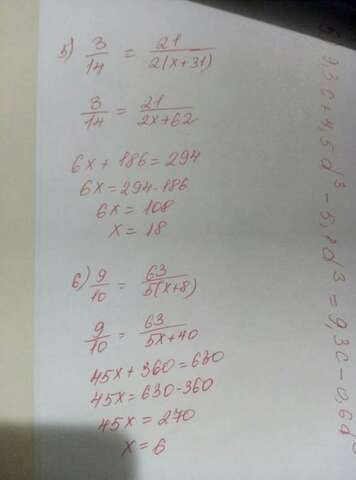 5) 3/14 = 21/2(x+31)
3/14 = 21/2x+62
6x + 186 = 294
6x = 294-186
6x = 108
x = 18
6) 9/10 = 63/5(x+8)
9/10 = 63/5x+40
45x + 360 = 630
45x = 630-360
45x = 270
x = 6
9,3c+4,5d³-5,1d³ = 9,3c-0,6d³